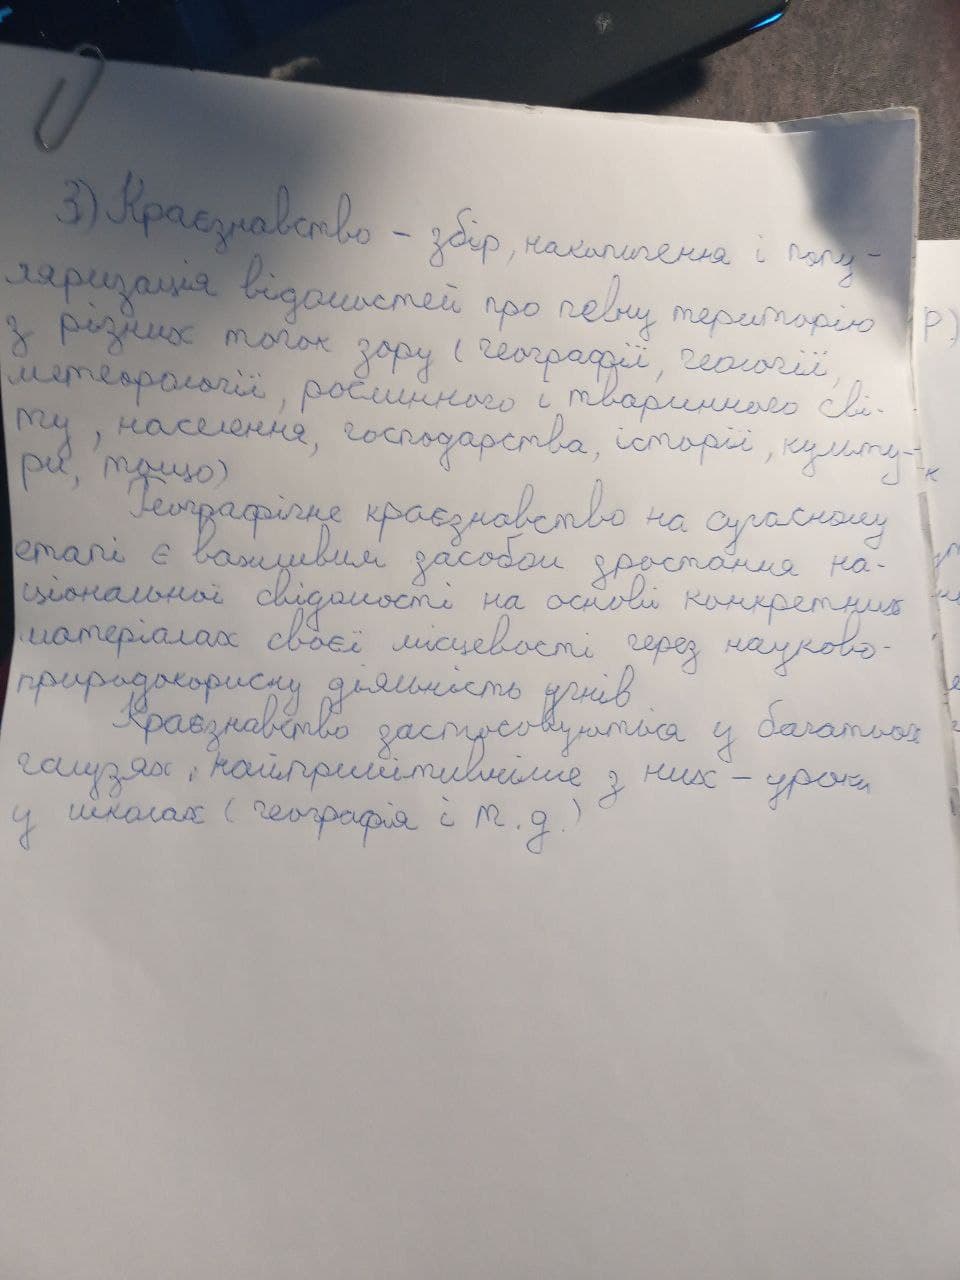 3) Краєзнавство – збір, накопичення і попу-
ляризація відомостей про певну територію
з різних точок зору (географії, геології,
метеорології, рослинного і тваринного сві-
ту, населення, господарства, історії, культу-
ри, тощо)
Географічне краєзнавство на сучасному
етапі є важливим засобом зростання на-
ціональної свідомості на основі конкретних
матеріалах своєї місцевості через науково-
природокорисну діяльність учнів
Краєзнавство застосовуються у багатьох
галузях, найпримітивніше з них – уроки
у школах (географія і т.д.)
р)